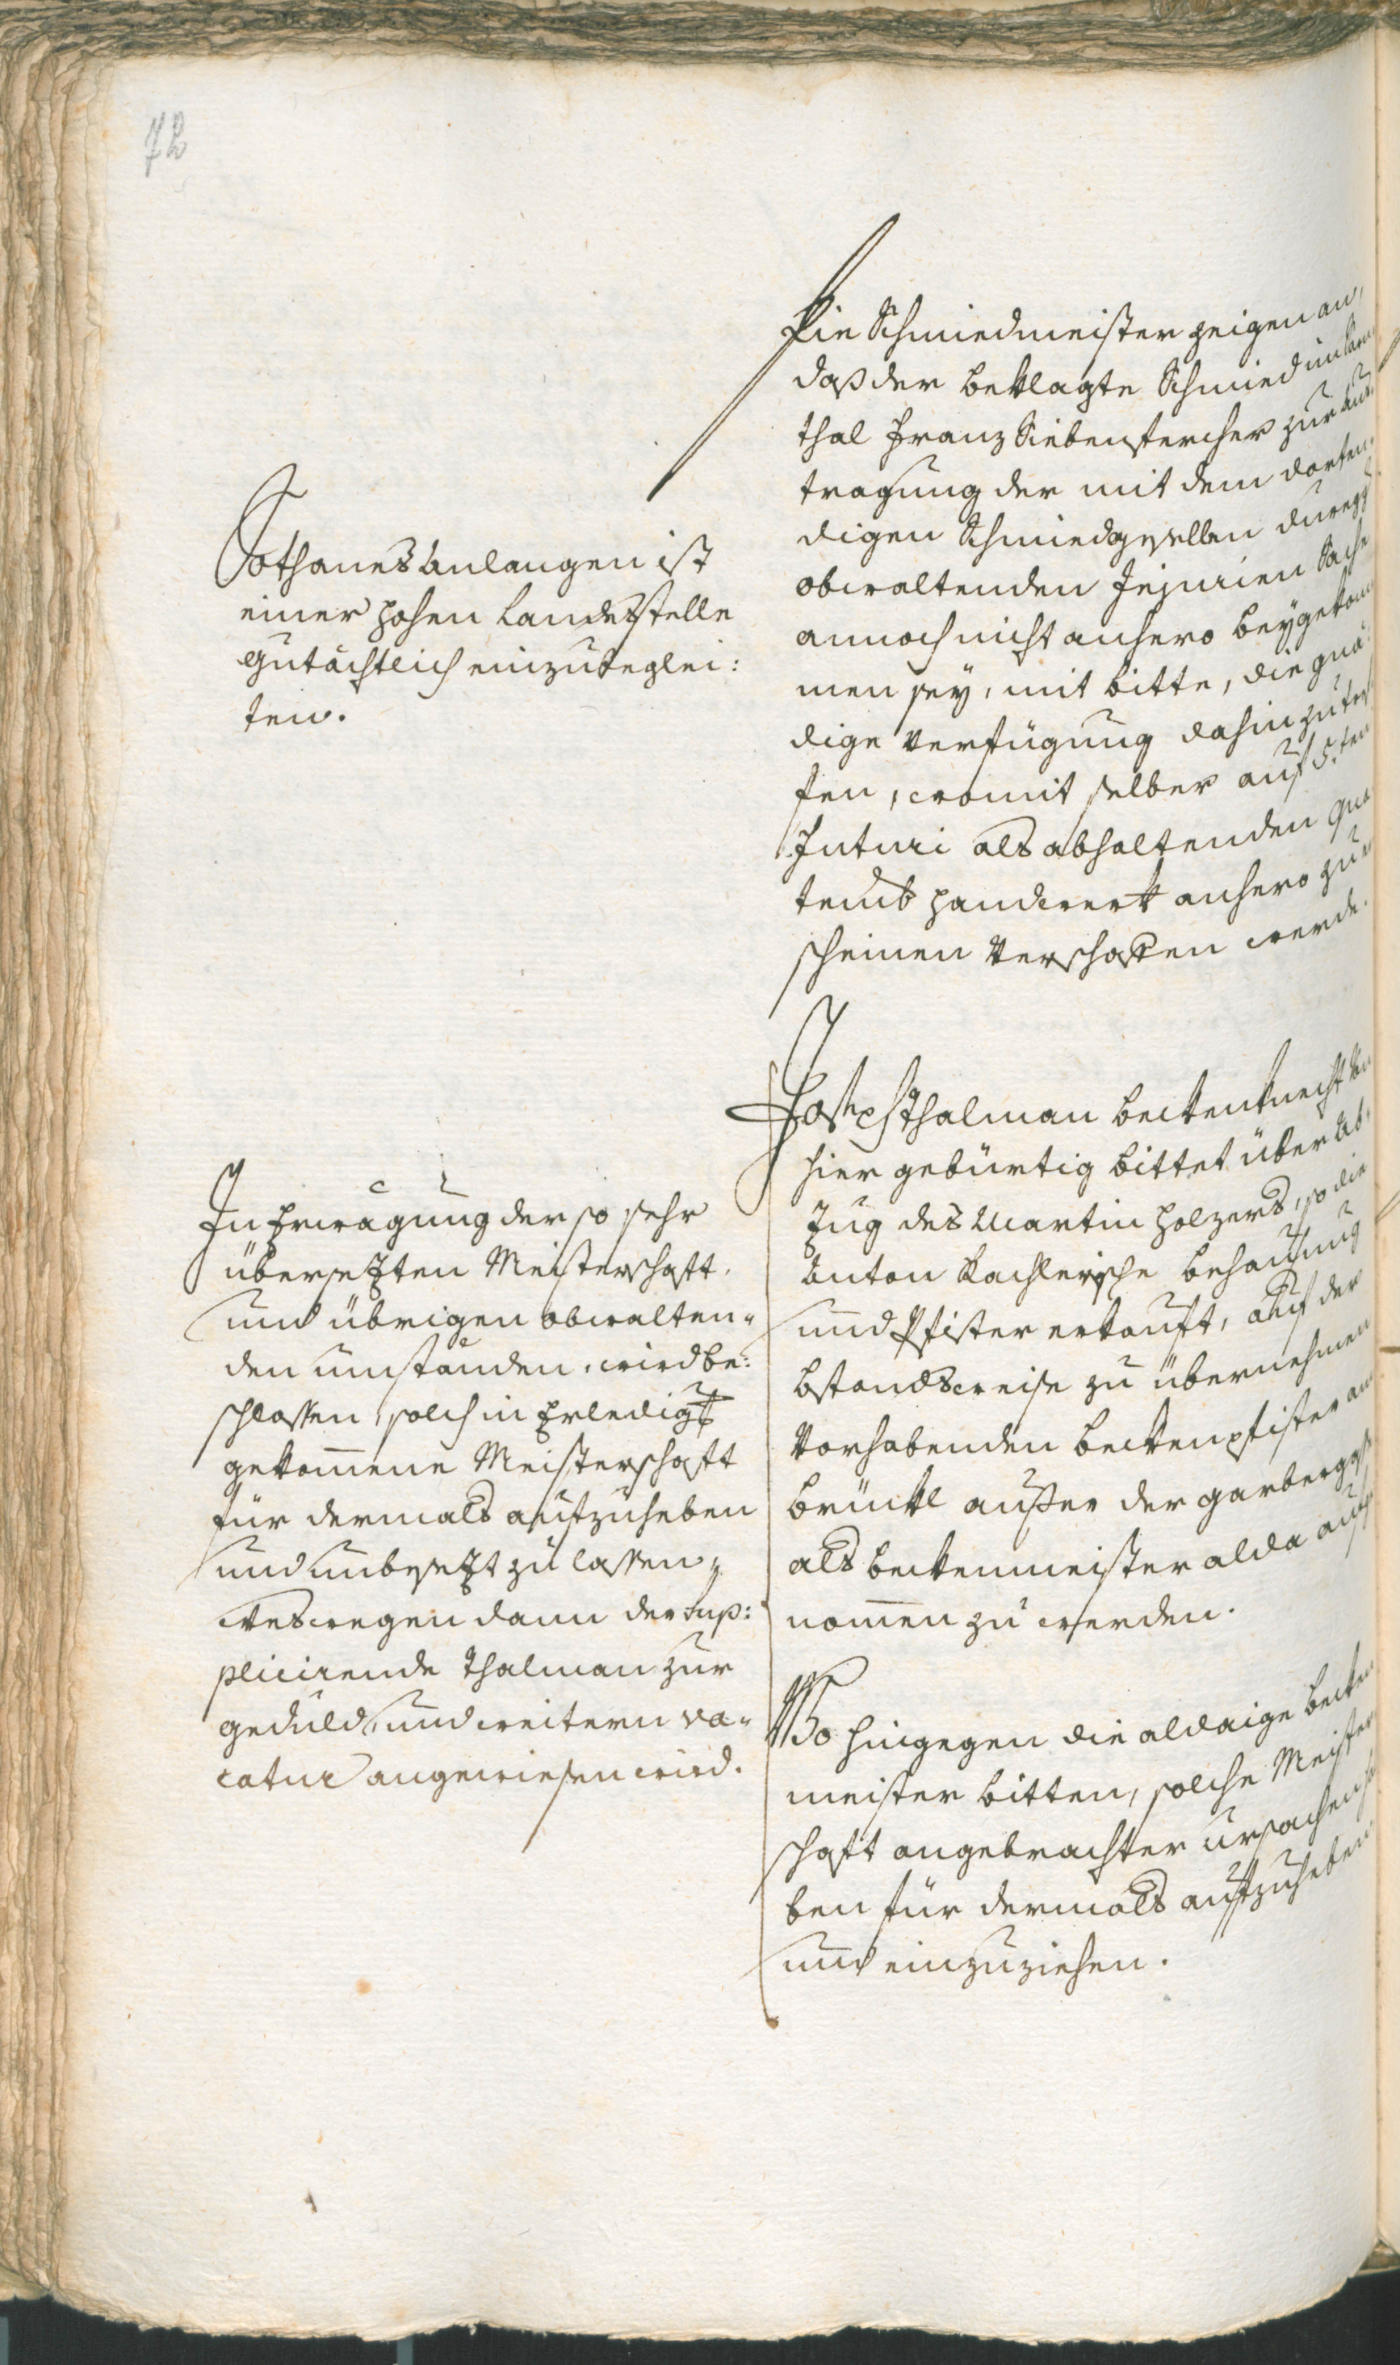 72
Die Schmiedmeister zeigen an,
daß der beklagte Schmied im
thal Franz Siebenstercher zur Aus
tragung der mit dem dorten
digen Schmiedgesellen
obwaltenden Injurien Sache
annoch nicht anhero beygekom
men sey, mit bitte, die gnä
dige Verfügung dahin zu tref
fen, womit selber auf 5.ten
Futuri als abhaltenden Qua
temb handwerk anhero zu er
scheinen Verschaffen werde.
Sothanes Anlangen ist
einer hohen Landesstelle
gutächtlich einzubeglei:
ten.
Joseph Thalman beckenknecht Von
hier gebürtig bittet über Ab,
zug des Martin Holzers, so die
Anton Kachlerische behausung
und Pfister erkauft, auf der
bstandsweise zu übernehmen
Vorhabenden beckenpfister am
brünkl außer der garbergass
als beckenmeister alda aufge
nom̅en zu werden.
In Erwägung der so sehr
übersezten Meisterschaft,
und übrigen obwalten-
den umständen, wird be:
schlossen, solch in Erledigt
gekom̅ene Meisterschaft
für dermals aufzuheben
und unbesezt zu lassen,
weswegen dann der Sup:
plicirende Thalman zur
geduld, und weitern va-
catur angewiesen wird.
Wo hingegen die aldaige becken
meister bitten, solche Meister
schaft angebrachter ursachen hal
ben für dermals aufzuheben
und einzuziehen.